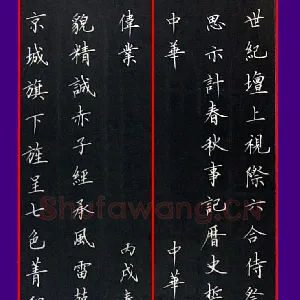 世紀壇上視際六合侍
思計春秋事記曆史哲
中華 中華
偉業 丙戌
貌精誠赤子經承風雷
京城旗下旌呈七色菁
Shufawang.CN